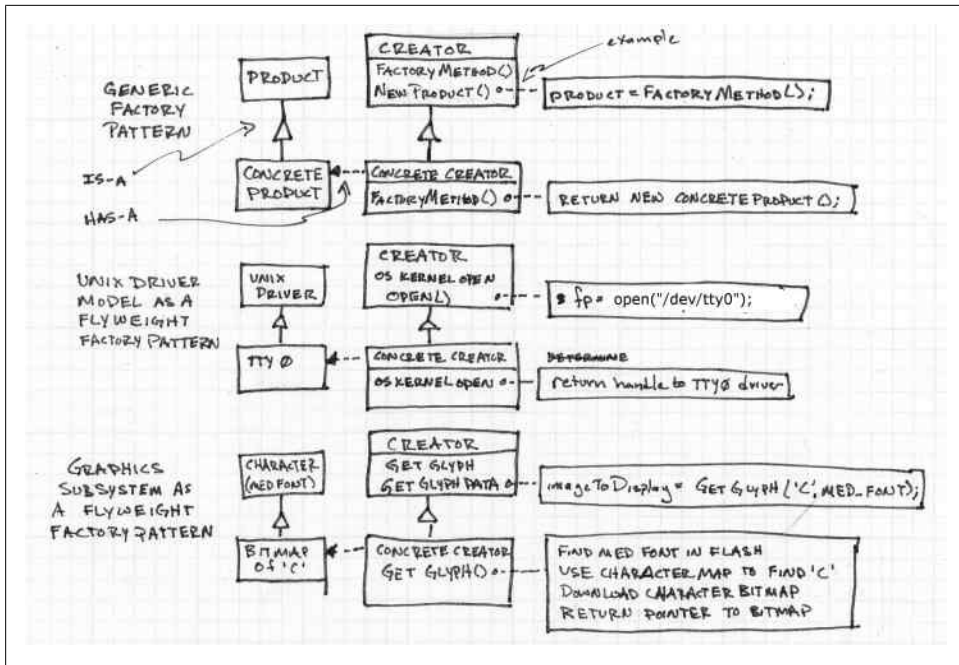 GENERIC
FACTORY
PATTERN
IS-A
HAS-A
PRODUCT
CONCRETE
PRODUCT
CREATOR
FACTORYMETHOD()
NEWPRODUCT()
example
PRODUCT = FACTORYMETHOD();
CONCRETE CREATOR
FACTORYMETHOD()
RETURN NEW CONCRETEPRODUCT();
UNIX DRIVER
MODEL AS A
FLYWEIGHT
FACTORY PATTERN
UNIX
DRIVER
TTYØ
CREATOR
OS KERNEL OPEN
OPEN()
fp = open("/dev/tty0");
CONCRETE CREATOR
OS KERNEL OPEN
DETERMINE
return handle to TTYØ driver
GRAPHICS
SUBSYSTEM AS
A FLYWEIGHT
FACTORY PATTERN
CHARACTER
(MED FONT)
BITMAP
OF 'C'
CREATOR
GET GLYPH
GET GLYPH DATA
imageToDisplay = GET GLYPH('C', MED_FONT);
CONCRETE CREATOR
GET GLYPH()
FIND MED FONT IN FLASH
USE CHARACTER MAP TO FIND 'C'
DOWNLOAD CHARACTER BITMAP
RETURN POINTER TO BITMAP